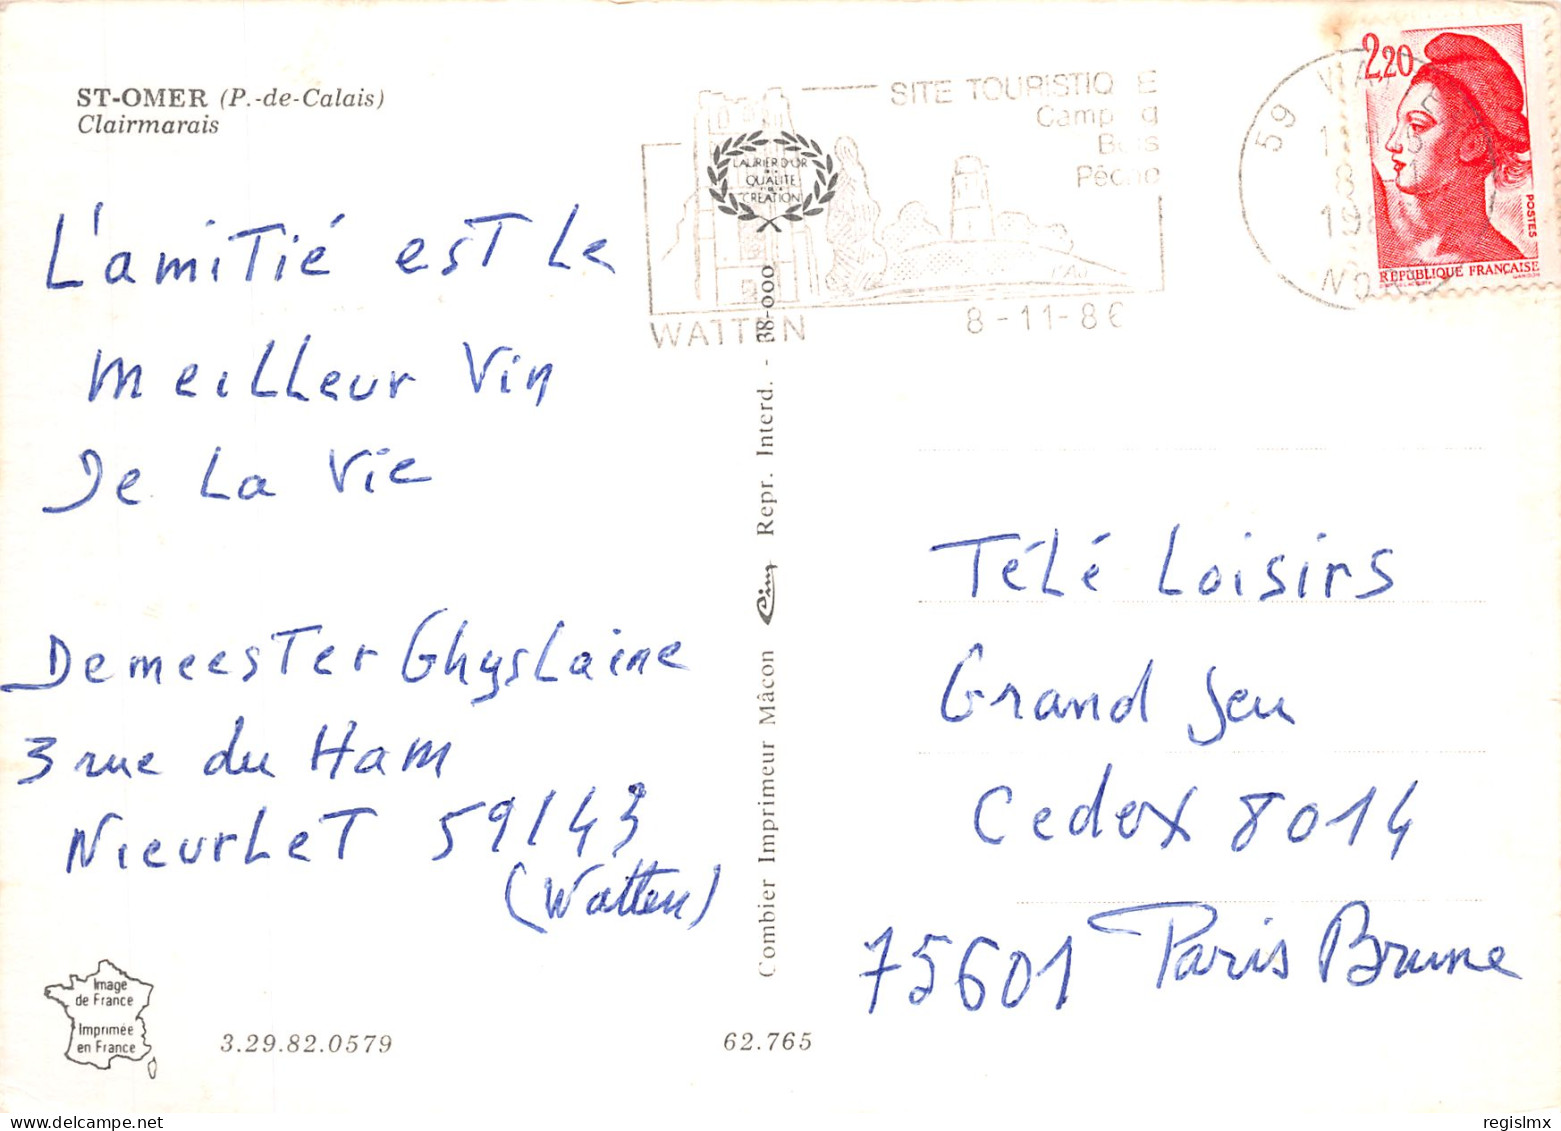 ST-OMER (P.-de-Calais)
Clairmarais
L'amiTié esT Le
meiLLeur Vin
De La Vie
DemeesTer GhysLaine
3 rue du Ham
NieurLeT 59143
(Watten)
Image
de France
Imprimée
en France
3.29.82.0579
62.765
Combier Imprimeur Mâcon Cim Repr. Interd. - 38-000
LAURIER D'OR
QUALITE
CREATION
SITE TOURISTIQ E
Camp g
B is
Pêche
WATTEN
8-11-86
59
2,20
POSTES
REPUBLIQUE FRANÇAISE
TéLé Loisirs
Grand Jeu
Cedex 8014
75601 Paris Brune
regislmx